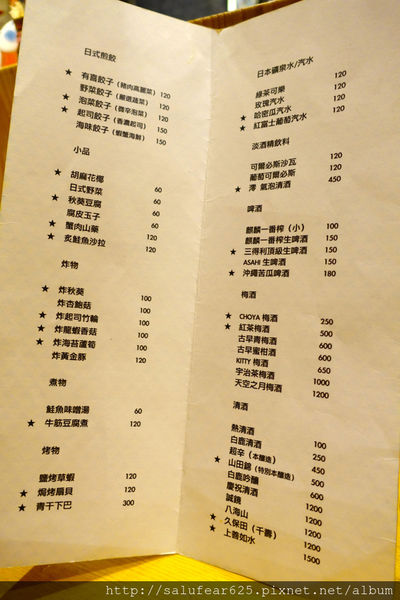 日式煎餃
★ 有喜餃子 (豬肉高麗菜) 120
野菜餃子 (嚴選蔬菜) 120
★ 泡菜餃子 (微辛泡菜) 120
★ 起司餃子 (香濃起司) 150
海味餃子 (蝦蟹海鮮) 150
小品
★ 胡麻花椰
日式野菜 60
★ 秋葵豆腐 60
腐皮玉子 60
★ 蟹肉山藥 120
★ 炙鮭魚沙拉 120
炸物
★ 炸秋葵 100
炸杏鮑菇 100
★ 炸起司竹輪 100
★ 炸龍蝦香菇 100
★ 炸海苔蘆筍 100
炸黃金豚 120
煮物
鮭魚味噌湯 60
★ 牛筋豆腐煮 120
烤物
鹽烤草蝦 120
★ 焗烤扇貝 120
★ 青干下巴 300
日本礦泉水/汽水
綠茶可樂 120
玫瑰汽水 120
★ 哈密瓜汽水 120
★ 紅富士葡萄汽水 120
淡酒精飲料
可爾必斯沙瓦 120
葡萄可爾必斯 120
★ 澪 氣泡清酒 450
啤酒
麒麟一番榨 (小) 100
麒麟一番榨生啤酒 150
★ 三得利頂級生啤酒 150
ASAHI 生啤酒 150
★ 沖繩苦瓜啤酒 180
梅酒
★ CHOYA 梅酒 250
★ 紅茶梅酒 500
古早青梅酒 600
古早蜜柑酒 600
KITTY 梅酒 600
宇治茶梅酒 1000
天空之月梅酒 1200
清酒
熱清酒
白鹿清酒 100
超辛 (本釀造) 250
★ 山田錦 (特別本釀造) 450
白鹿吟釀 500
慶祝清酒 600
誠鏡 1200
★ 八海山 1200
★ 久保田 (千壽) 1200
★ 上善如水 1500
http://salufear625.pixnet.net/album